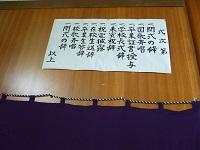 式次第
一開式の辞
一国歌斉唱
一卒業証書授与
一学校長式辞
一来賓祝辞
一祝電披露
一在校生送辞
一卒業生答辞
一校歌斉唱
一閉式の辞
以上